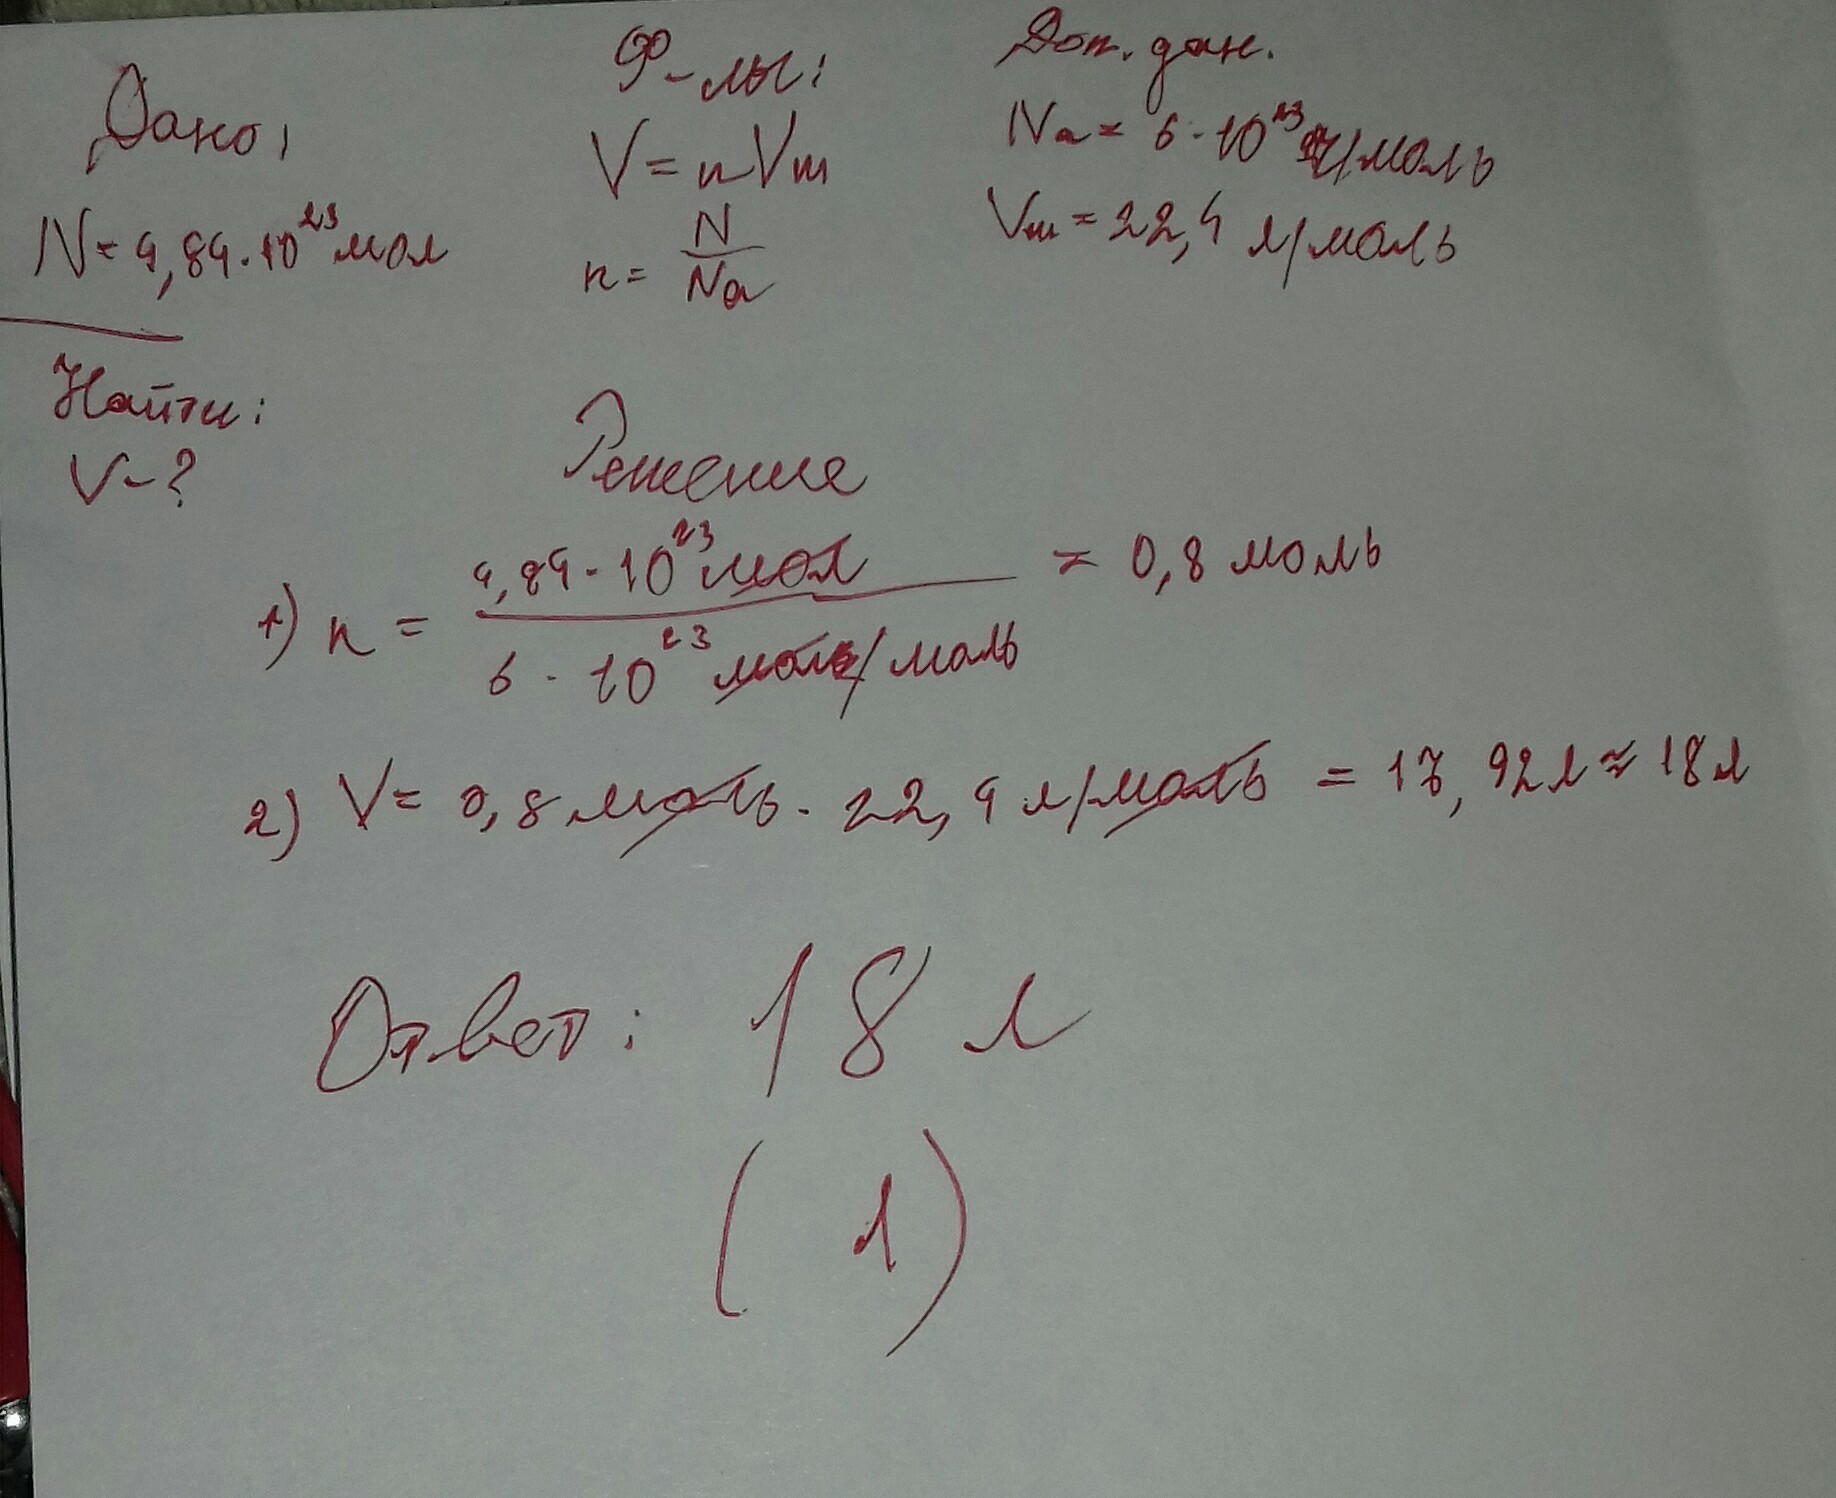 Дано:
N = 4,84 · 10²³ мол
Найти:
V - ?
Ф-лы:
V = nVm
n = N/Na
Доп. дан.
Na = 6 · 10²³ /моль
Vm = 22,4 л/моль
Решение
1) n = 4,84 · 10²³ мол / 6 · 10²³ мол/моль = 0,8 моль
2) V = 0,8 моль · 22,4 л/моль = 17,92 л ≈ 18 л
Ответ: 18 л
(1)